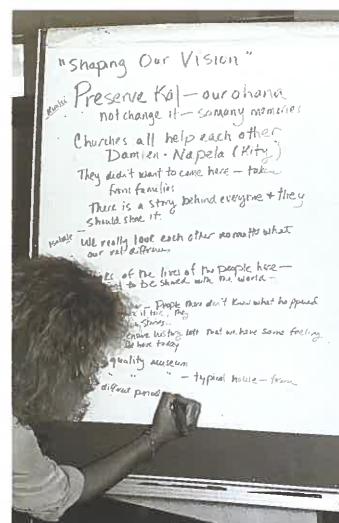 "Shaping Our Vision"
Preserve Kal — our ohana
not change it — so many memories
Churches all help each other
Damien · Napela (Kitty)
They didn't want to come here — taken
from families
There is a story behind everyone & they
should share it.
We really love each other no matter what
our rel. differences
of the lives of the people here —
to be shared with the world —
People don't know what happened
it this, they
stories...
history left that we have some feeling
we have today
quality museum
" " — typical house — from
different periods